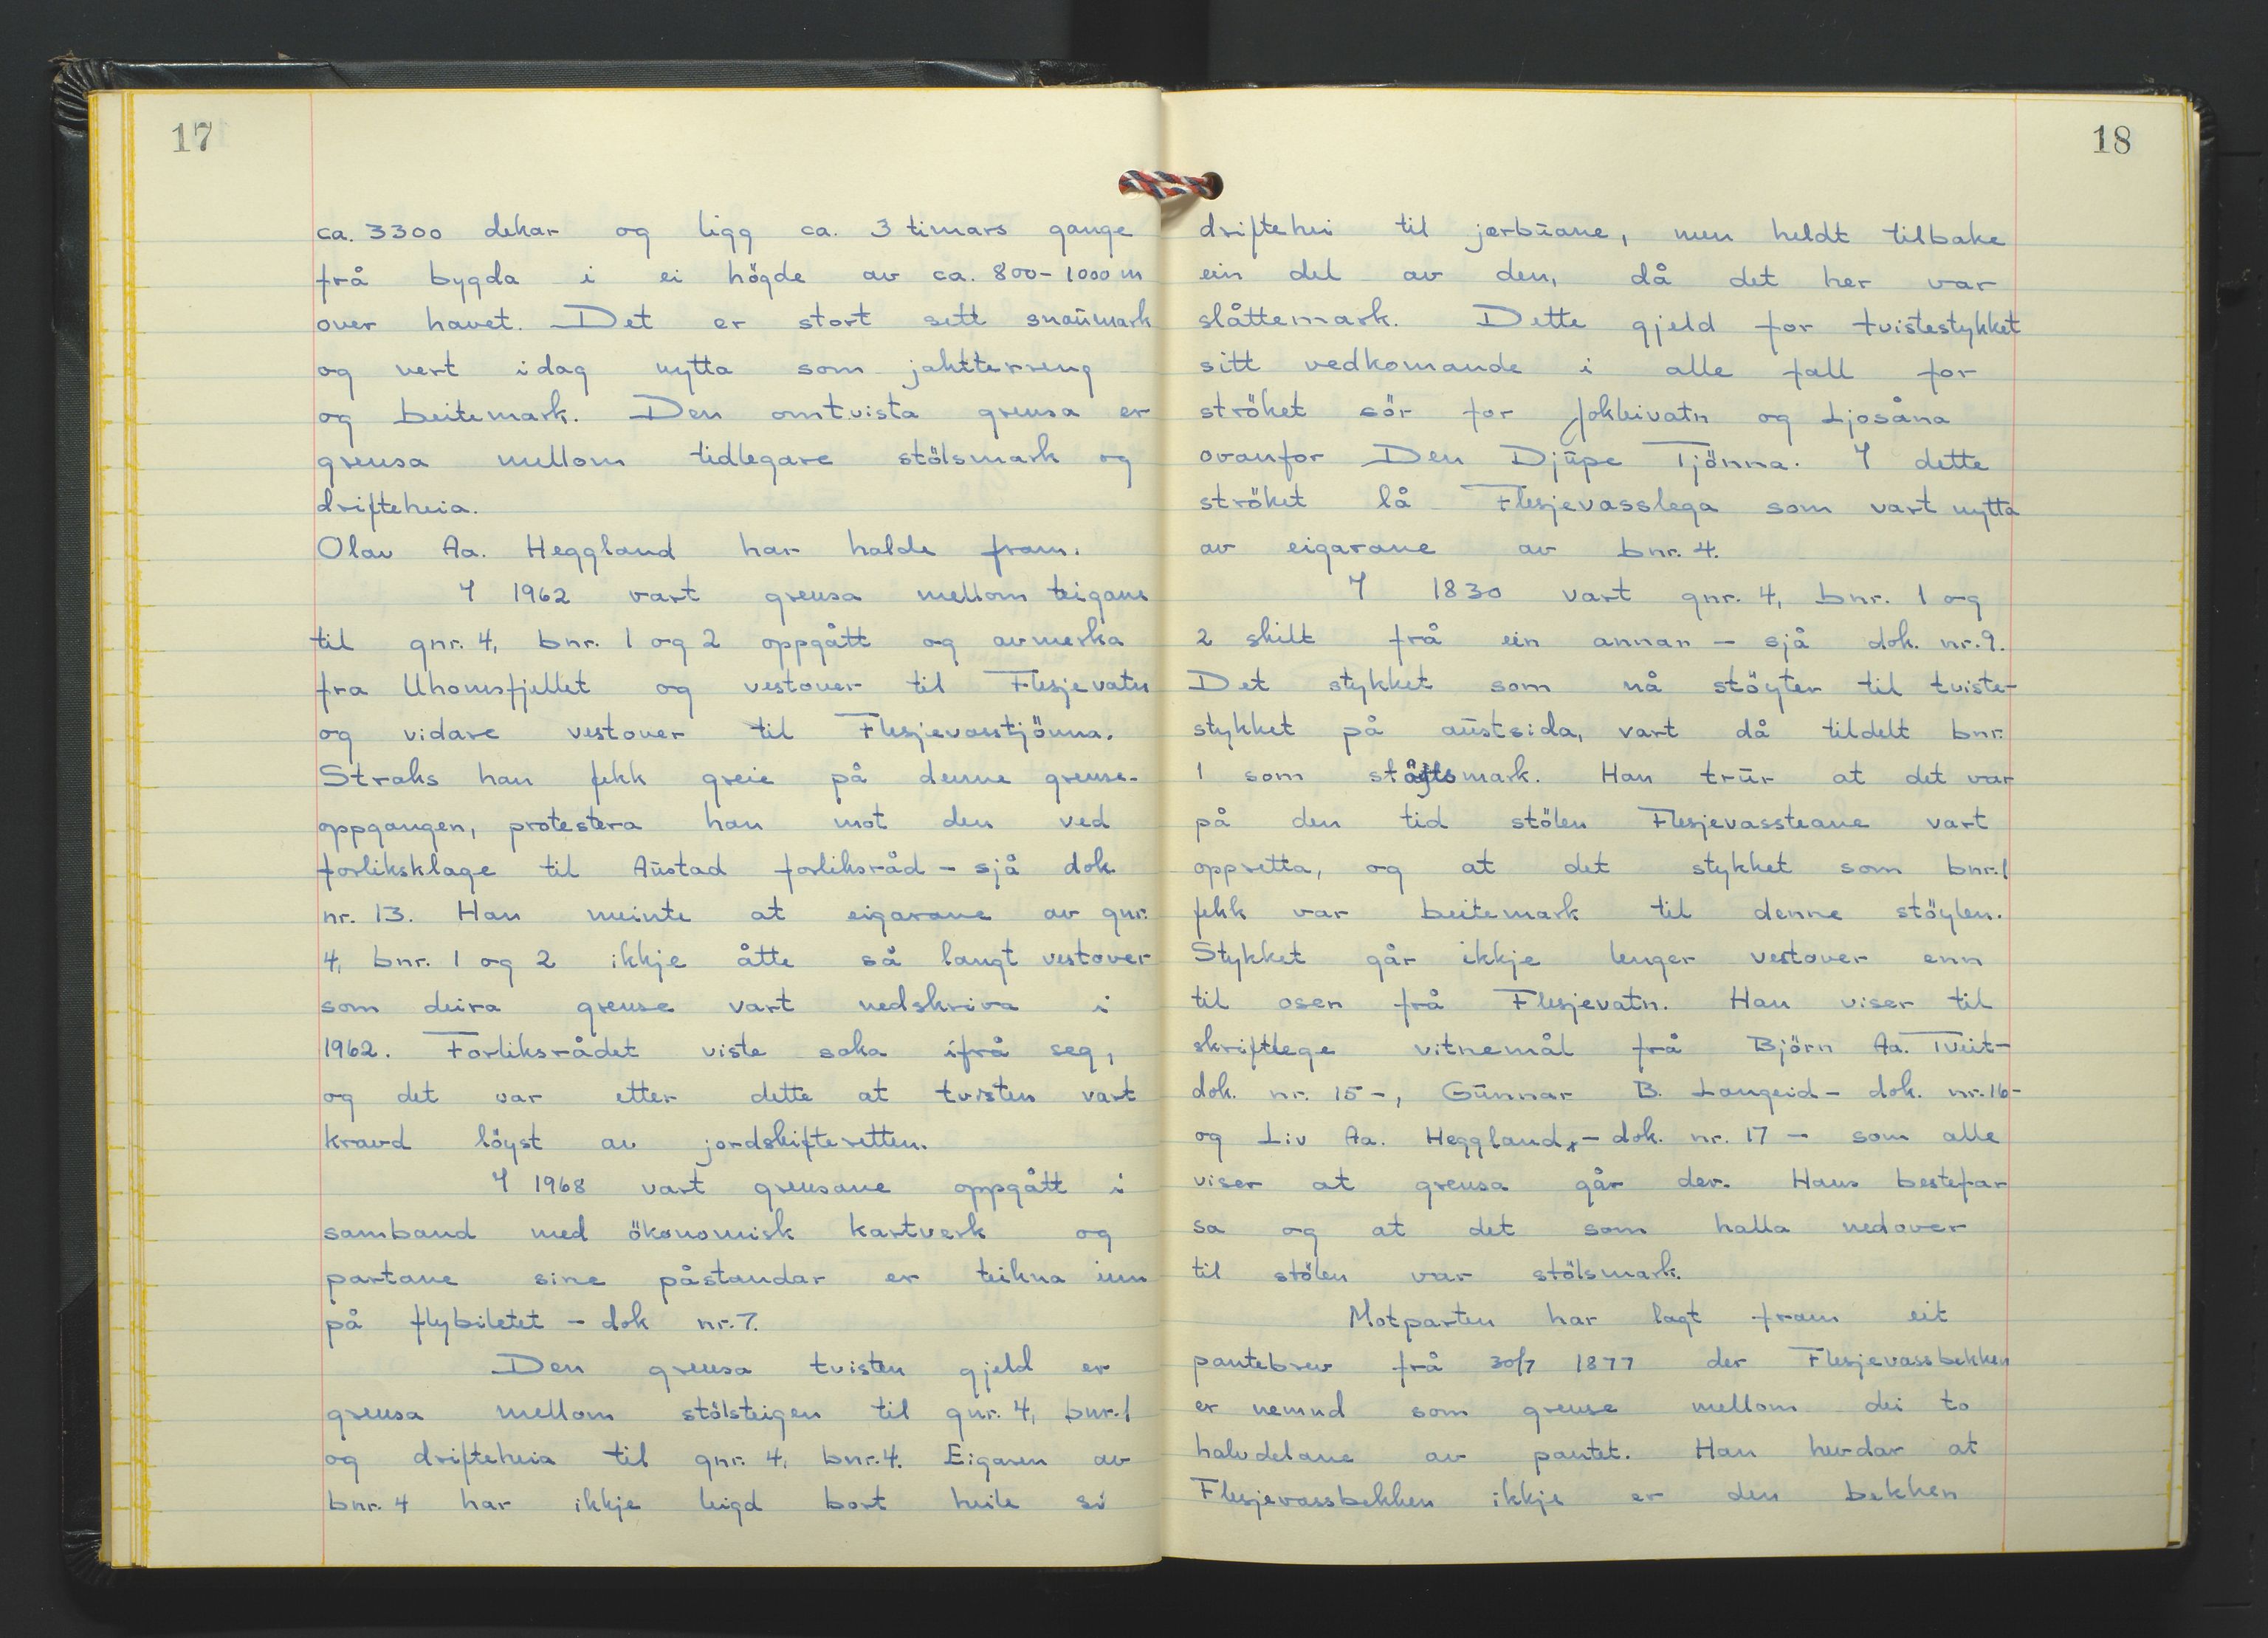 17
ca. 3300 dekar og ligg ca. 3 timars gange
frå bygda i ei högde av ca. 800-1000 m
over havet. Det er stort sett snaumark
og vert idag nytta som jaktterreng
og beitemark. Den omtvista grensa er
grensa mellom tidlegare stölsmark og
drifteheia.
Olav Aa. Heggland har halde fram.
I 1962 vart grensa mellom teigane
til gnr. 4, bnr. 1 og 2 oppgått og avmerka
fra Uhomsfjellet og vestover til Flesjevatn
og vidare vestover til Flesjevasstjönna.
Straks han fekk greie på denne grense-
oppgangen, protestera han mot den ved
forliksklage til Austad forliksråd - sjå dok.
nr. 13. Han meinte at eigarane av gnr.
4, bnr. 1 og 2 ikkje åtte så langt vestover
som deira grense vart nedskriva i
1962. Forliksrådet viste saka ifrå seg,
og det var etter dette at tvisten vart
kravd löyst av jordskifteretten.
I 1968 vart grensane oppgått i
samband med ökonomisk kartverk og
partane sine påstandar er teikna inn
på flybiletet - dok nr. 7.
Den grensa tvisten gjeld er
grensa mellom stölsteigen til gnr. 4, bnr. 1
og drifteheia til gnr. 4, bnr. 4. Eigaren av
bnr. 4 har ikkje leigd bort heile si
18
driftehei til jærbuane, men heldt tilbake
ein del av den, då det her var
slåttemark. Dette gjeld for tvistestykket
sitt vedkomande i alle fall for
ströket sör for Jokleivatn og Ljosåna
ovanfor Den Djupe Tjönna. I dette
ströket lå Flesjevasslega som vart nytta
av eigarane av bnr. 4.
I 1830 vart gnr. 4, bnr. 1 og
2 skilt frå ein annan - sjå dok. nr. 9.
Det stykket som nå stöyter til tviste-
stykket på austsida, vart då tildelt bnr.
1 som mark. Han trur at det var
på den tid stölen Flesjevassteane vart
oppretta, og at det stykket som bnr. 1
fekk var beitemark til denne stöylen.
Stykket går ikkje lenger vestover enn
til osen frå Flesjevatn. Han viser til
skriftlege vitnemål frå Björn Aa. Tveit-
dok. nr. 15 -, Gunnar B. Langeid - dok. nr. 16 -
og Liv Aa. Heggland, - dok. nr. 17 - som alle
viser at grensa går der. Hans bestefar
sa og at det som halla nedover
til stölen var stölsmark.
Motparten har lagt fram eit
pantebrev frå 30/7 1877 der Flesjevassbekken
er nemnd som grense mellom dei to
halvdelane av pantet. Han hevdar at
Flesjevassbekken ikkje er den bekken